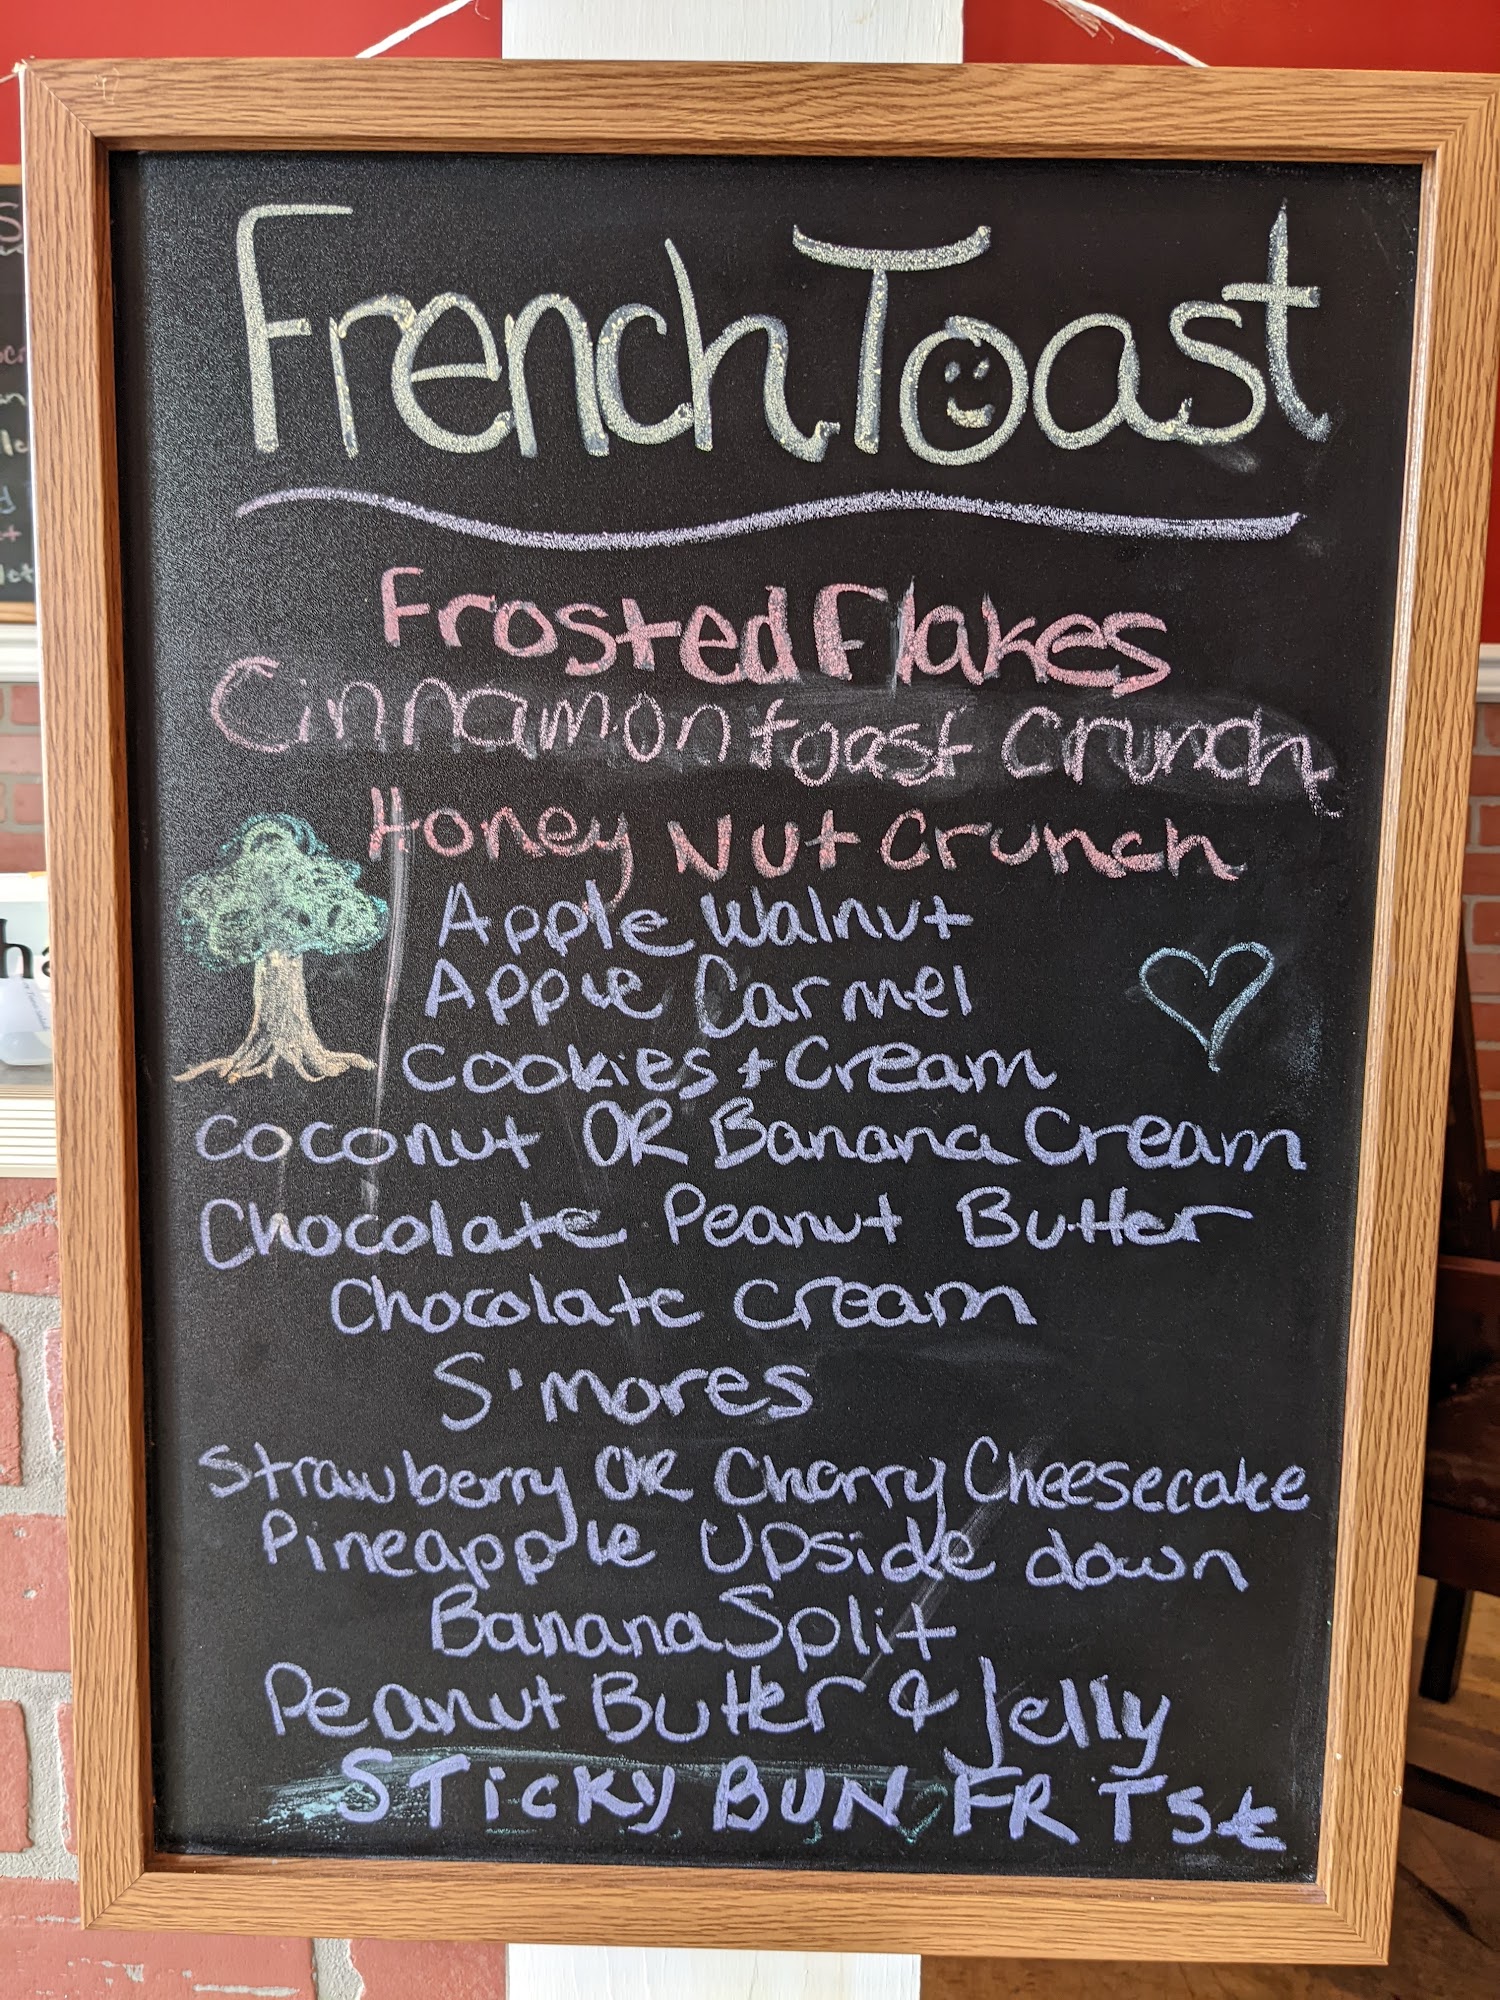 French Toast
Frosted Flakes
Cinnamon toast Crunch
Honey Nut Crunch
Apple Walnut
Apple Carmel
Cookies + Cream
Coconut OR Banana Cream
Chocolate Peanut Butter
Chocolate Cream
S'mores
Strawberry OR Cherry Cheesecake
Pineapple Upside down
Banana Split
Peanut Butter & Jelly
STicky BUN FR TSt